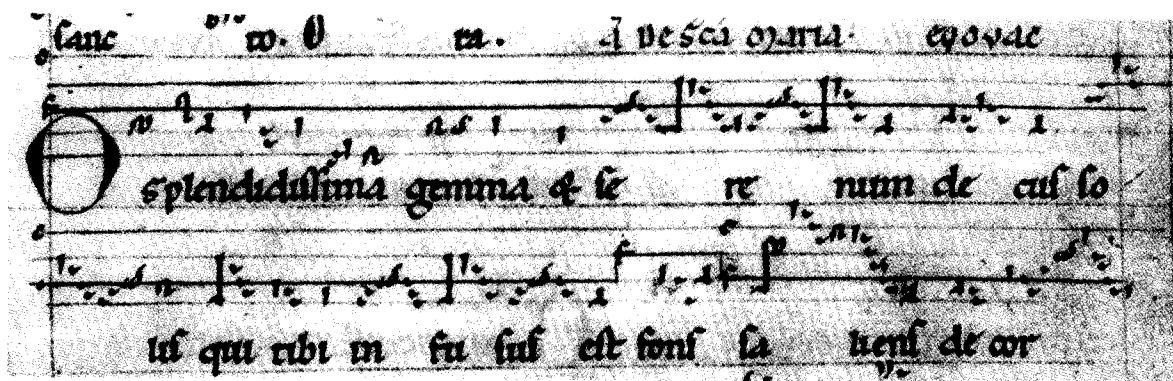 sanc to. O ta. A De S̄cā Maria. evovae
O splendidissima gemma & se re num de cus so
lis qui tibi in fu sus est fons sa liens de cor